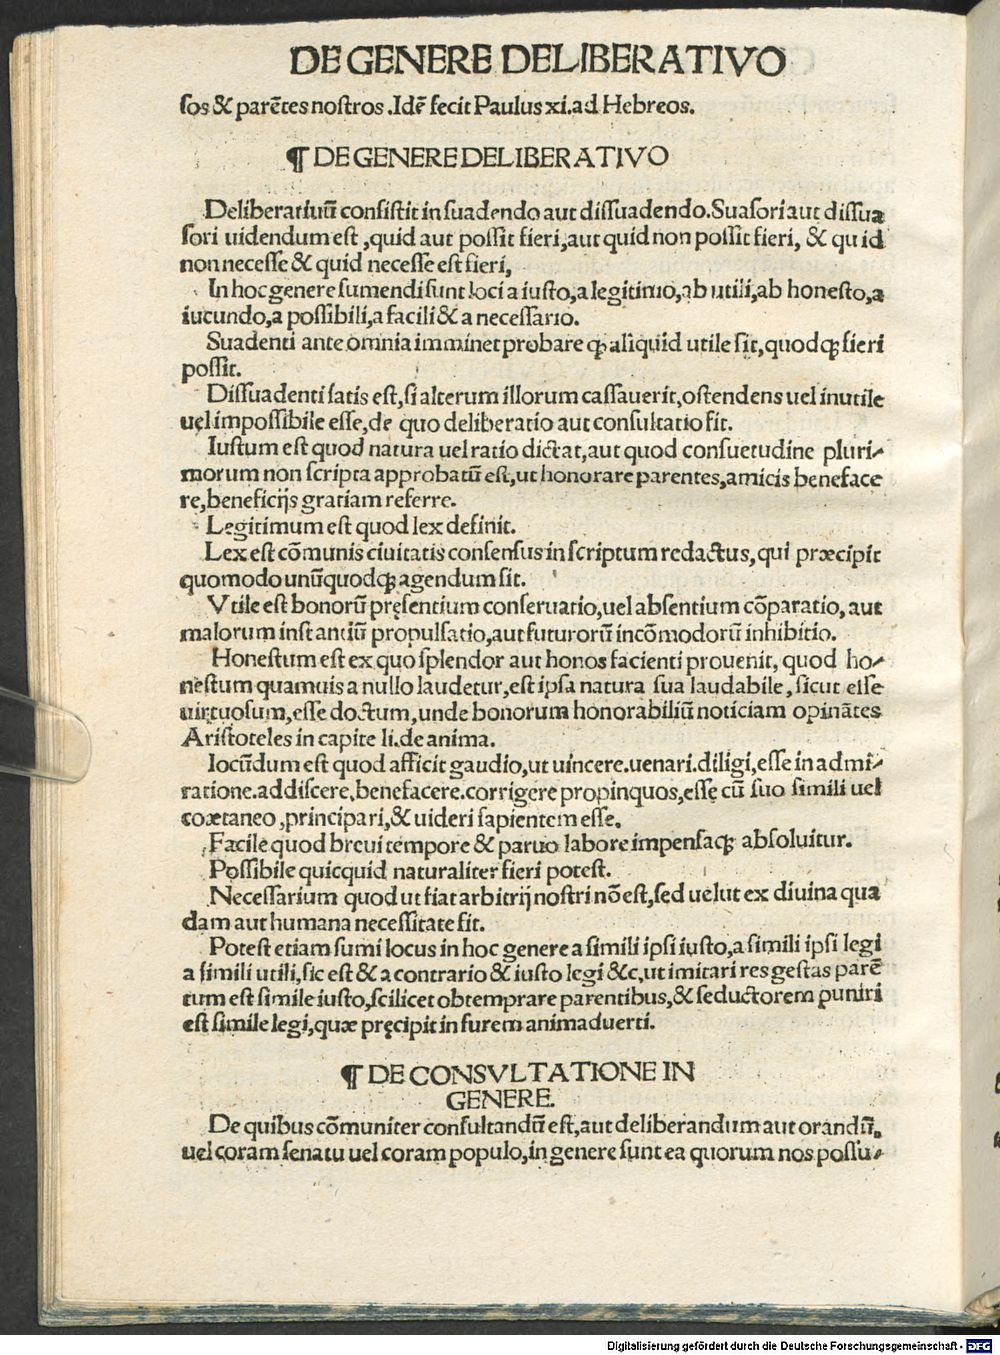 DE GENERE DELIBERATIVO
sos & parētes nostros .Idē fecit Paulus xi.ad Hebreos.
¶ DE GENERE DELIBERATIVO
Deliberatiuū consistit in suadendo aut dissuadendo.Suasori aut dissua
sori uidendum est ,quid aut possit fieri,aut quid non possit fieri, & quid
non necesse & quid necesse est fieri,
In hoc genere sumendi sunt loci a iusto,a legitimo,ab utili,ab honesto,a
iucundo,a possibili,a facili & a necessario.
Suadenti ante omnia imminet probare ꝙ aliquid utile sit,quodꝙ fieri
possit.
Dissuadenti satis est,si alterum illorum cassauerit,ostendens uel inutile
uel impossibile esse,de quo deliberatio aut consultatio fit.
Iustum est quod natura uel ratio dictat,aut quod consuetudine pluri-
morum non scripta approbatū est,ut honorare parentes,amicis beneface
re,beneficijs gratiam referre.
Legitimum est quod lex definit.
Lex est cōmunis ciuitatis consensus in scriptum redactus,qui præcipit
quomodo unūquodꝙ agendum sit.
Vtile est bonorū pręsentium conseruatio,uel absentium cōparatio, aut
malorum instantiū propulsatio,aut futurorū incōmodorū inhibitio.
Honestum est ex quo splendor aut honos facienti prouenit, quod ho-
nestum quamuis a nullo laudetur,est ipsa natura sua laudabile, sicut esse
uirtuosum,esse doctum,unde bonorum honorabiliū noticiam opinātes
Aristoteles in capite li.de anima.
Iocūdum est quod afficit gaudio,ut uincere.uenari.diligi,esse in admi-
ratione.addiscere,benefacere.corrigere propinquos,esse cū suo simili uel
coætaneo,principari,& uideri sapientem esse.
Facile quod breui tempore & paruo labore impensaꝙ absoluitur.
Possibile quicquid naturaliter fieri potest.
Necessarium quod ut fiat arbitrij nostri nō est,sed uelut ex diuina qua
dam aut humana necessitate fit.
Potest etiam sumi locus in hoc genere a simili ipsi iusto,a simili ipsi legi
a simili utili,sic est & a contrario & iusto legi &c,ut imitari res gestas parē
tum est simile iusto,scilicet obtemprare parentibus,& seductorem puniri
est simile legi,quæ pręcipit in furem animaduerti.
¶ DE CONSVLTATIONE IN
GENERE.
De quibus cōmuniter consultandū est,aut deliberandum aut orandū,
uel coram senatu uel coram populo,in genere sunt ea quorum nos possu-
Digitalisierung gefördert durch die Deutsche Forschungsgemeinschaft - DFG